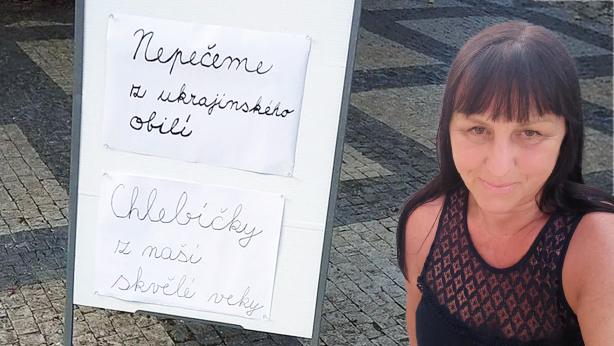 Nepečeme
z ukrajinského
obilí
Chlebíčky
z naší
skvělé veky